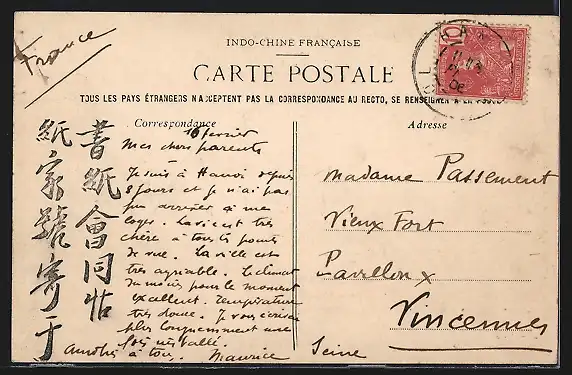 France
INDO-CHINE FRANÇAISE
CARTE POSTALE
TOUS LES PAYS ÉTRANGERS N'ACCEPTENT PAS LA CORRESPONDANCE AU RECTO, SE RENSEIGNER A LA POSTE
Correspondance
16 février
Mes chers parents
Je suis à Hanoï depuis
8 jours et je n'ai pas
pu arriver à me
loger. La vie est très
chère à tous les points
de vue. La ville est
très agréable. Le climat
du moins pour le moment
excellent. Température
très douce. Je vous écrirai
plus longuement une
fois installé.
Amitiés à tous. Maurice
書紙會同帖
紙家號寄于
Adresse
10
Madame Passement
Vieux Fort
Pavillon x
Vincennes
Seine